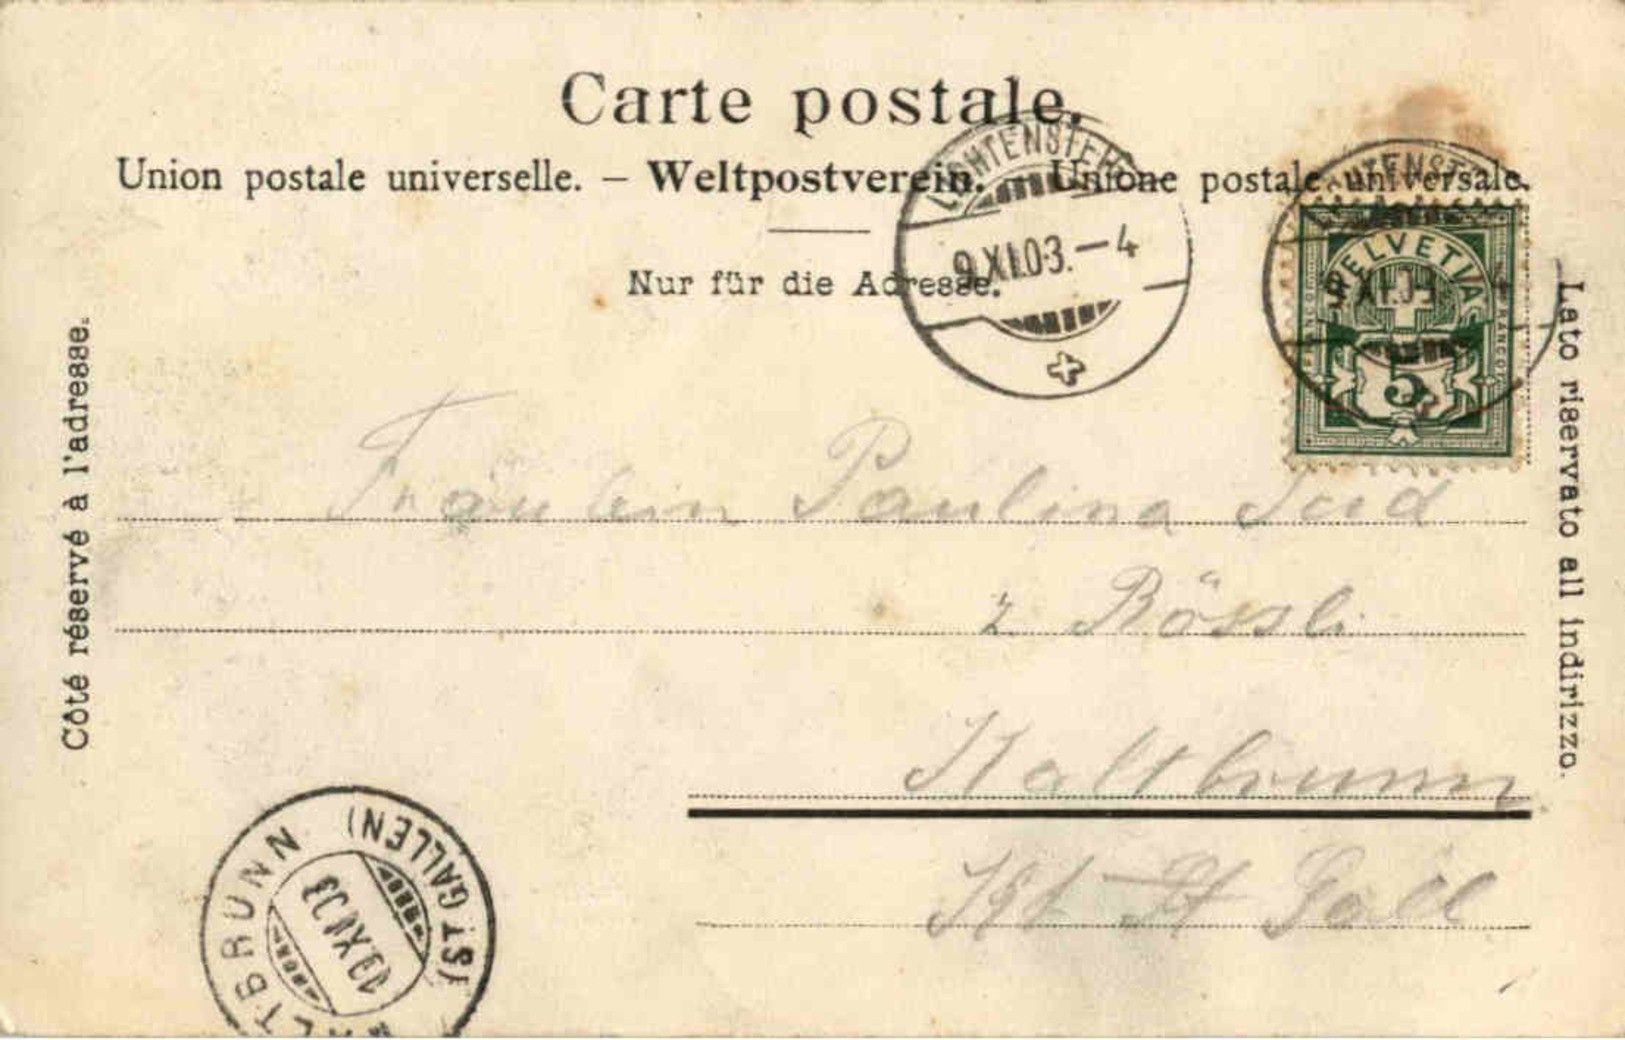 Carte postale.
Union postale universelle. – Weltpostverein. – Unione postale universale.
Nur für die Adresse.
Côté réservé à l'adresse.
Lato riservato all indirizzo.
LICHTENSTEIG
9.XI.03.–4
HELVETIA
FRANCO
FRANCO
5
Fräulein Paulina
z. Rössli
Kaltbrunn
Kt. St Gall
KALTBRUNN
(ST GALLEN)
XI 03